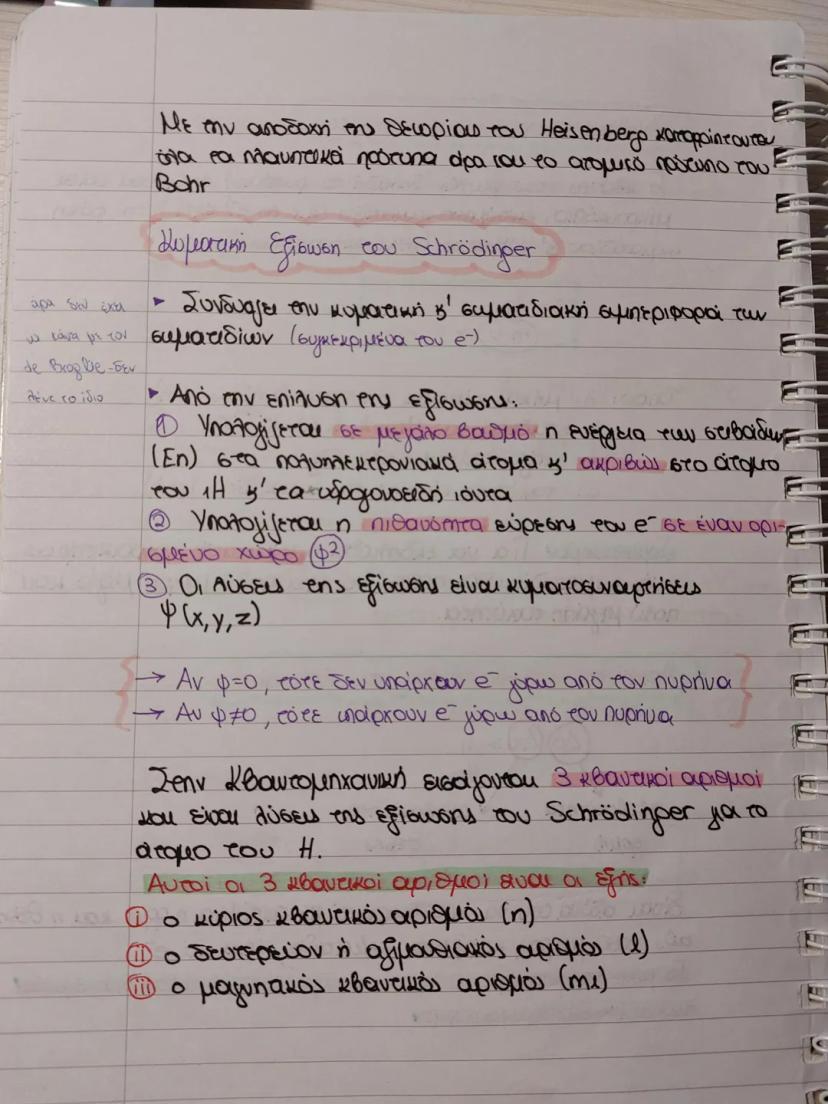 Με την αποδοχή της θεωρίας του Heisenberg καταρρίπτονται
όλα τα πλανητικά πρότυπα άρα και το ατομικό πρότυπο του
Bohr
Κυματική Εξίσωση του Schrödinger
▸ Συνδυάζει την κυματική κ' σωματιδιακή συμπεριφορά των
σωματιδίων (συγκεκριμένα του e⁻)
άρα δεν έχει
να κάνει με τον
de Broglie - δεν
λένε το ίδιο
▸ Από την επίλυση της εξίσωσης:
① Υπολογίζεται σε μεγάλο βαθμό η ενέργεια των στιβάδων
(En) στα πολυηλεκτρονιακά άτομα κ' ακριβώς στο άτομο
του ₁H κ' τα υδρογονοειδή ιόντα
② Υπολογίζεται η πιθανότητα εύρεσης του e⁻ σε έναν ορι-
σμένο χώρο (ψ²)
③ Οι λύσεις της εξίσωσης είναι κυματοσυναρτήσεις
Ψ(x,y,z)
→ Αν ψ=0, τότε δεν υπάρχουν e⁻ γύρω από τον πυρήνα
→ Αν ψ≠0, τότε υπάρχουν e⁻ γύρω από τον πυρήνα
Στην Κβαντομηχανική εισάγονται 3 κβαντικοί αριθμοί
και είναι λύσεις της εξίσωσης του Schrödinger για το
άτομο του H.
Αυτοί οι 3 κβαντικοί αριθμοί είναι οι εξής:
ⓘ ο κύριος κβαντικός αριθμός (n)
ⓘⓘ ο δευτερεύον ή αζιμουθιακός αριθμός (l)
ⓘⓘⓘ ο μαγνητικός κβαντικός αριθμός (ml)